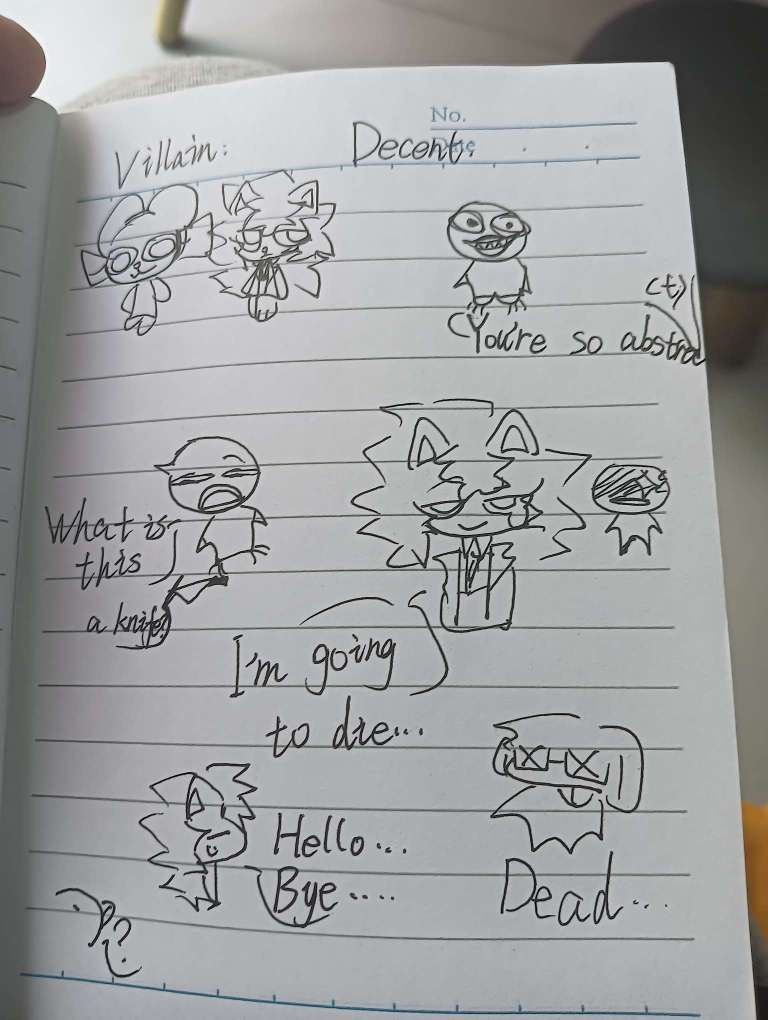 No.
Villain:
Decent:
(t)
(You're so abstrac
What is
this
a knife?
I'm going
to die...
Hello...
Bye....
Dead...